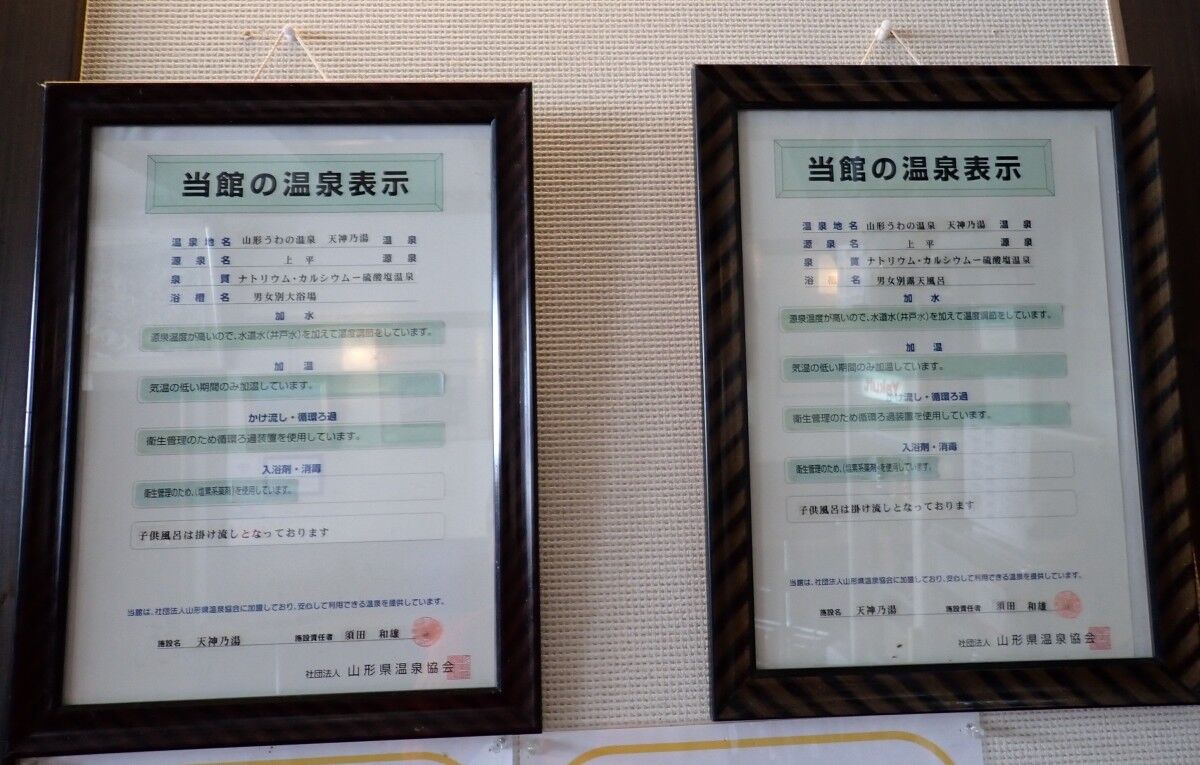 当館の温泉表示
温泉地名 山形うわの温泉 天神乃湯 温泉
源泉名 上平 源泉
泉質 ナトリウム・カルシウム－硫酸塩温泉
浴槽名 男女別大浴場
加水
源泉温度が高いので、水道水(井戸水)を加えて温度調節をしています。
加温
気温の低い期間のみ加温しています。
かけ流し・循環ろ過
衛生管理のため循環ろ過装置を使用しています。
入浴剤・消毒
衛生管理のため、(塩素系薬剤)を使用しています。
子供風呂は掛け流しとなっております
当館は、社団法人山形県温泉協会に加盟しており、安心して利用できる温泉を提供しています。
施設名 天神乃湯 施設責任者 須田 和雄
社団法人 山形県温泉協会
当館の温泉表示
温泉地名 山形うわの温泉 天神乃湯 温泉
源泉名 上平 源泉
泉質 ナトリウム・カルシウム－硫酸塩温泉
浴槽名 男女別露天風呂
加水
源泉温度が高いので、水道水(井戸水)を加えて温度調節をしています。
加温
気温の低い期間のみ加温しています。
かけ流し・循環ろ過
衛生管理のため循環ろ過装置を使用しています。
入浴剤・消毒
衛生管理のため、(塩素系薬剤)を使用しています。
子供風呂は掛け流しとなっております
当館は、社団法人山形県温泉協会に加盟しており、安心して利用できる温泉を提供しています。
施設名 天神乃湯 施設責任者 須田 和雄
社団法人 山形県温泉協会